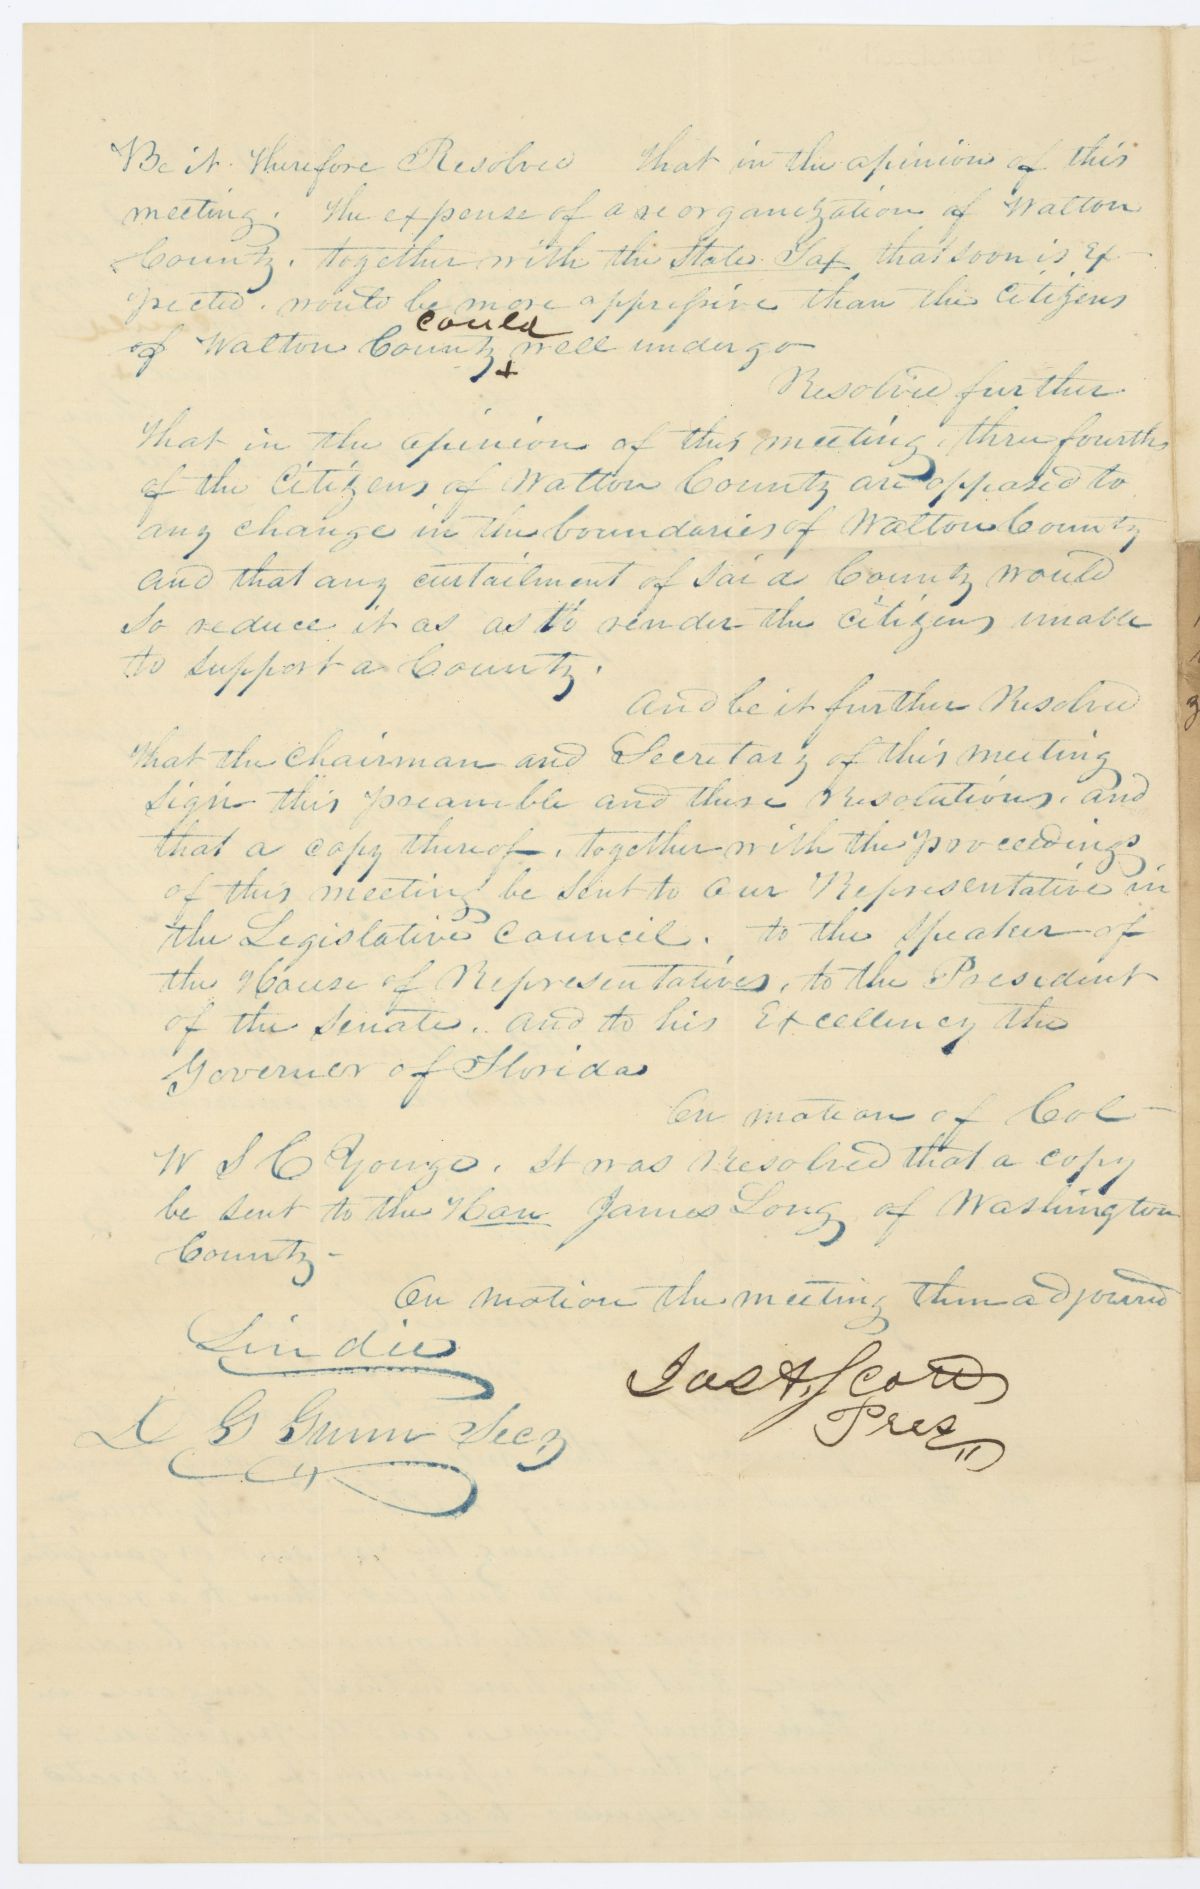 Be it therefore Resolved that in the opinion of this
meeting. the expense of a reorganization of Walton
County, together with the State Tax that soon is Ex
pected. would be more oppressive than the Citizens
could
of Walton County well undergo
+
Resolved further
that in the opinion of this meeting, three fourths
of the Citizens of Walton County are opposed to
any change in the boundaries of Walton County
and that any curtailment of said County would
so reduce it as as to render the Citizens unable
to support a County.
And be it further Resolved
that the Chairman and Secretary of this meeting
sign this preamble and these Resolutions, and
that a copy thereof, together with the proceedings
of this meeting be sent to Our Representative in
the Legislative Council. to the Speaker of
the House of Representatives, to the President
of the Senate. and to his Excellency the
Governor of Florida
On motion of Col
W S C Yonge. it was Resolved that a copy
be sent to the Hon James Long of Washington
County -
On motion the meeting then adjourned
Sin die
Jas A. Scott
Pres
D G Gunn Secy